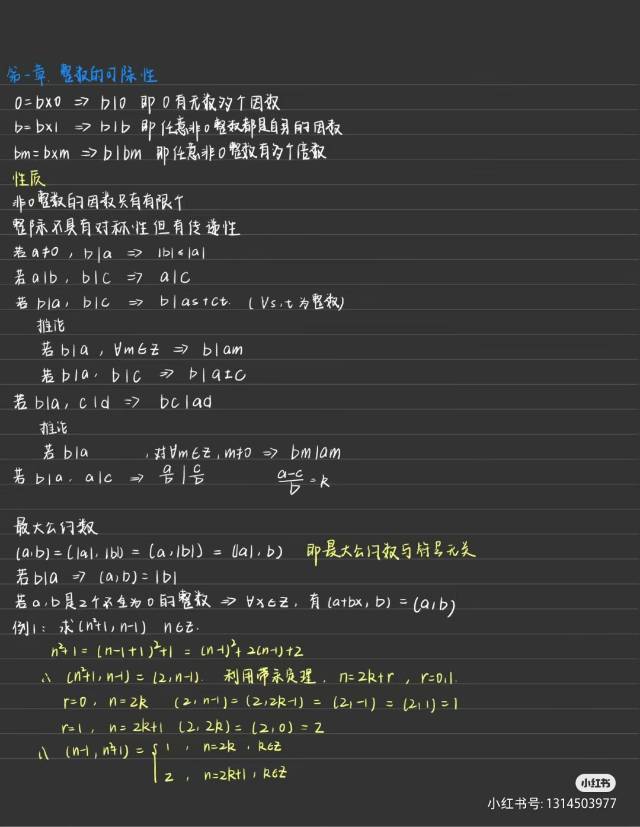 第一章 整数的可除性
0=b×0 ⇒ b|0 即0有无数多个因数
b=b×1 ⇒ b|b 即任意非0整数都是自身的因数
bm=b×m ⇒ b|bm 即任意非0整数有多个倍数
性质
非0整数的因数只有有限个
整除不具有对称性但有传递性
若a≠0, b|a ⇒ |b|≤|a|
若a|b, b|c ⇒ a|c
若b|a, b|c ⇒ b|as+ct. (∀s,t为整数)
推论
若b|a, ∀m∈Z ⇒ b|am
若b|a, b|c ⇒ b|a±c
若b|a, c|d ⇒ bc|ad
推论
若b|a ,对∀m∈Z, m≠0 ⇒ bm|am
若b|a, a|c ⇒ a/b | c/b (a-c)/b=k
最大公约数
(a,b)=(|a|,|b|)=(a,|b|)=(|a|,b) 即最大公约数与符号无关
若b|a ⇒ (a,b)=|b|
若a,b是2个不全为0的整数 ⇒ ∀x∈Z, 有(a+bx,b)=(a,b)
例1: 求(n²+1,n-1) n∈Z.
n²+1=(n-1+1)²+1=(n-1)²+2(n-1)+2
∴ (n²+1,n-1)=(2,n-1). 利用带余定理, n=2k+r, r=0,1.
r=0, n=2k (2,n-1)=(2,2k-1)=(2,-1)=(2,1)=1
r=1, n=2k+1 (2,2k)=(2,0)=2
∴ (n-1,n²+1)={1, n=2k, k∈Z
2, n=2k+1, k∈Z
小红书
小红书号: 1314503977